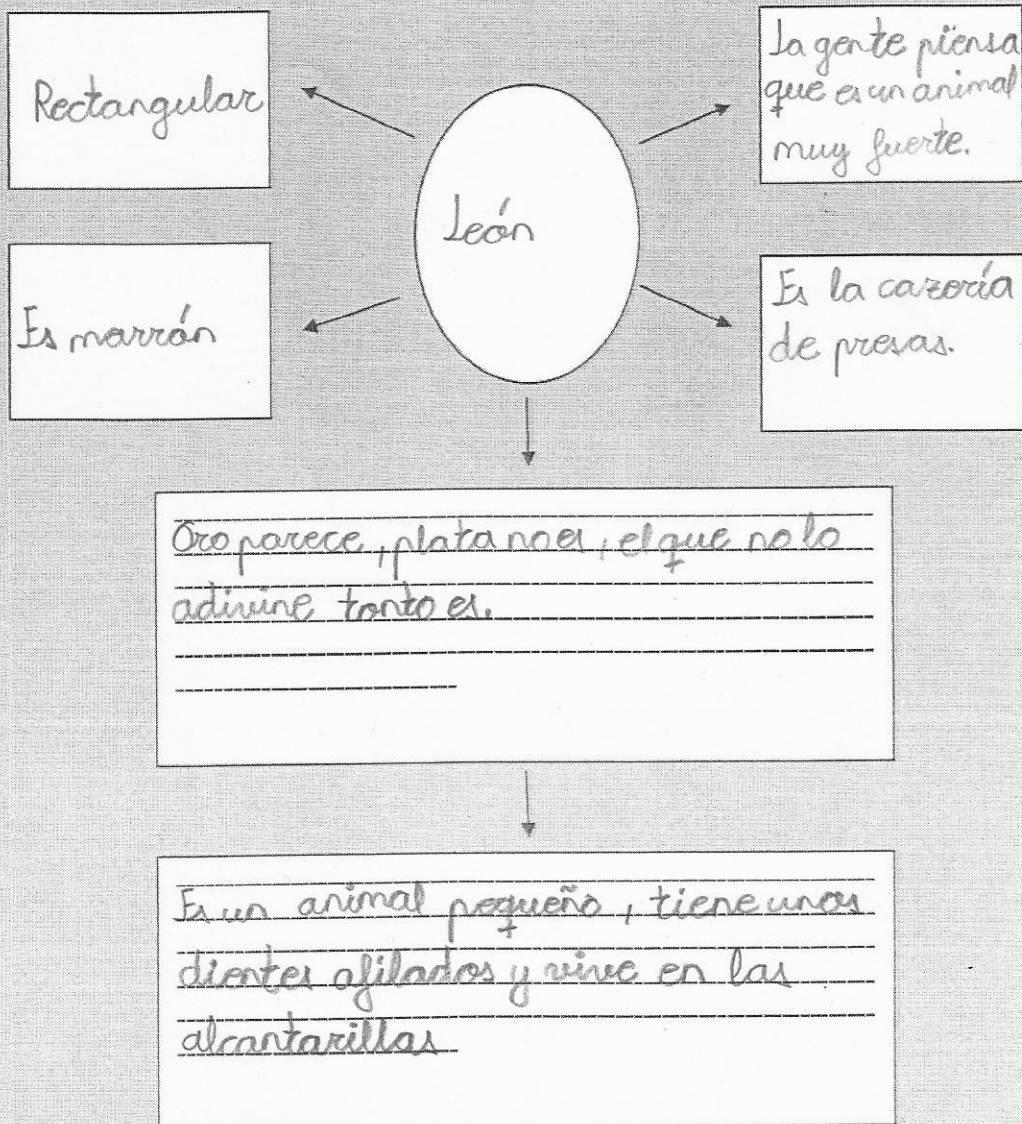 Rectangular
León
La gente piensa
que es un animal
muy fuerte.
Es marrón
Es la cazería
de presas.
Oro parece, plata no es, el que no lo
adivine tonto es.
Es un animal pequeño, tiene unos
dientes afilados y vive en las
alcantarillas